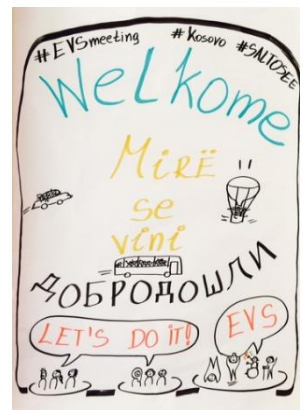 #EVSmeeting #Kosovo #SALTOSEE
Welkome
Mirë
se
vini
ДОБРОДОШЛИ
LET'S DO IT!
EVS